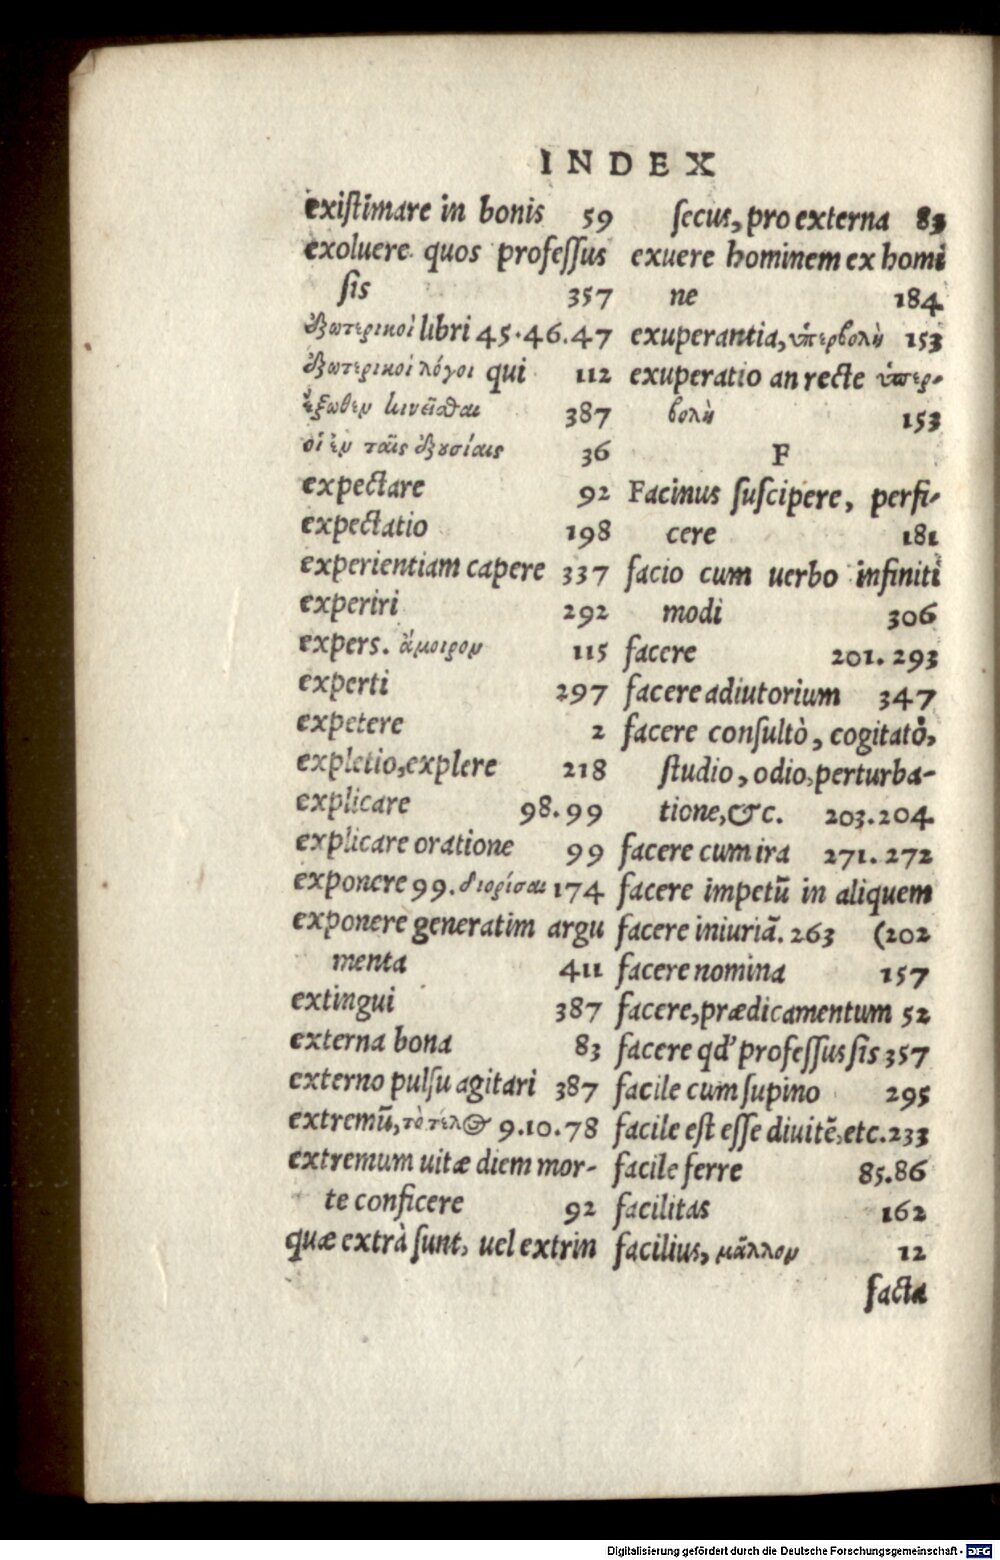 INDEX
existimare in bonis 59
exoluere quos professus
sis 357
ἐξωτερικοὶ libri 45.46.47
ἐξωτερικοὶ λόγοι qui 112
ἔξωθεν κινεῖσθαι 387
οἱ ἐν ταῖς ἐξουσίαις 36
expectare 92
expectatio 198
experientiam capere 337
experiri 292
expers. ἄμοιρον 115
experti 297
expetere 2
expletio, explere 218
explicare 98.99
explicare oratione 99
exponere 99. διορίσαι 174
exponere generatim argu
menta 411
extingui 387
externa bona 83
externo pulsu agitari 387
extremũ, τὸ τέλος 9.10.78
extremum uitæ diem mor-
te conficere 92
quæ extrà sunt, uel extrin
secus, pro externa 83
exuere hominem ex homi
ne 184
exuperantia, ὑπερβολὴ 153
exuperatio an recte ὑπερ-
βολὴ 153
F
Facinus suscipere, perfi-
cere 181
facio cum uerbo infiniti
modi 306
facere 201. 293
facere adiutorium 347
facere consultò, cogitatò,
studio, odio, perturba-
tione, &c. 203.204
facere cum ira 271. 272
facere impetũ in aliquem
facere iniuriã. 263 (202
facere nomina 157
facere, prædicamentum 52
facere qd' professus sis 357
facile cum supino 295
facile est esse diuitẽ, etc. 233
facile ferre 85.86
facilitas 162
facilius, μᾶλλον 12
facta
Digitalisierung gefördert durch die Deutsche Forschungsgemeinschaft - DFG